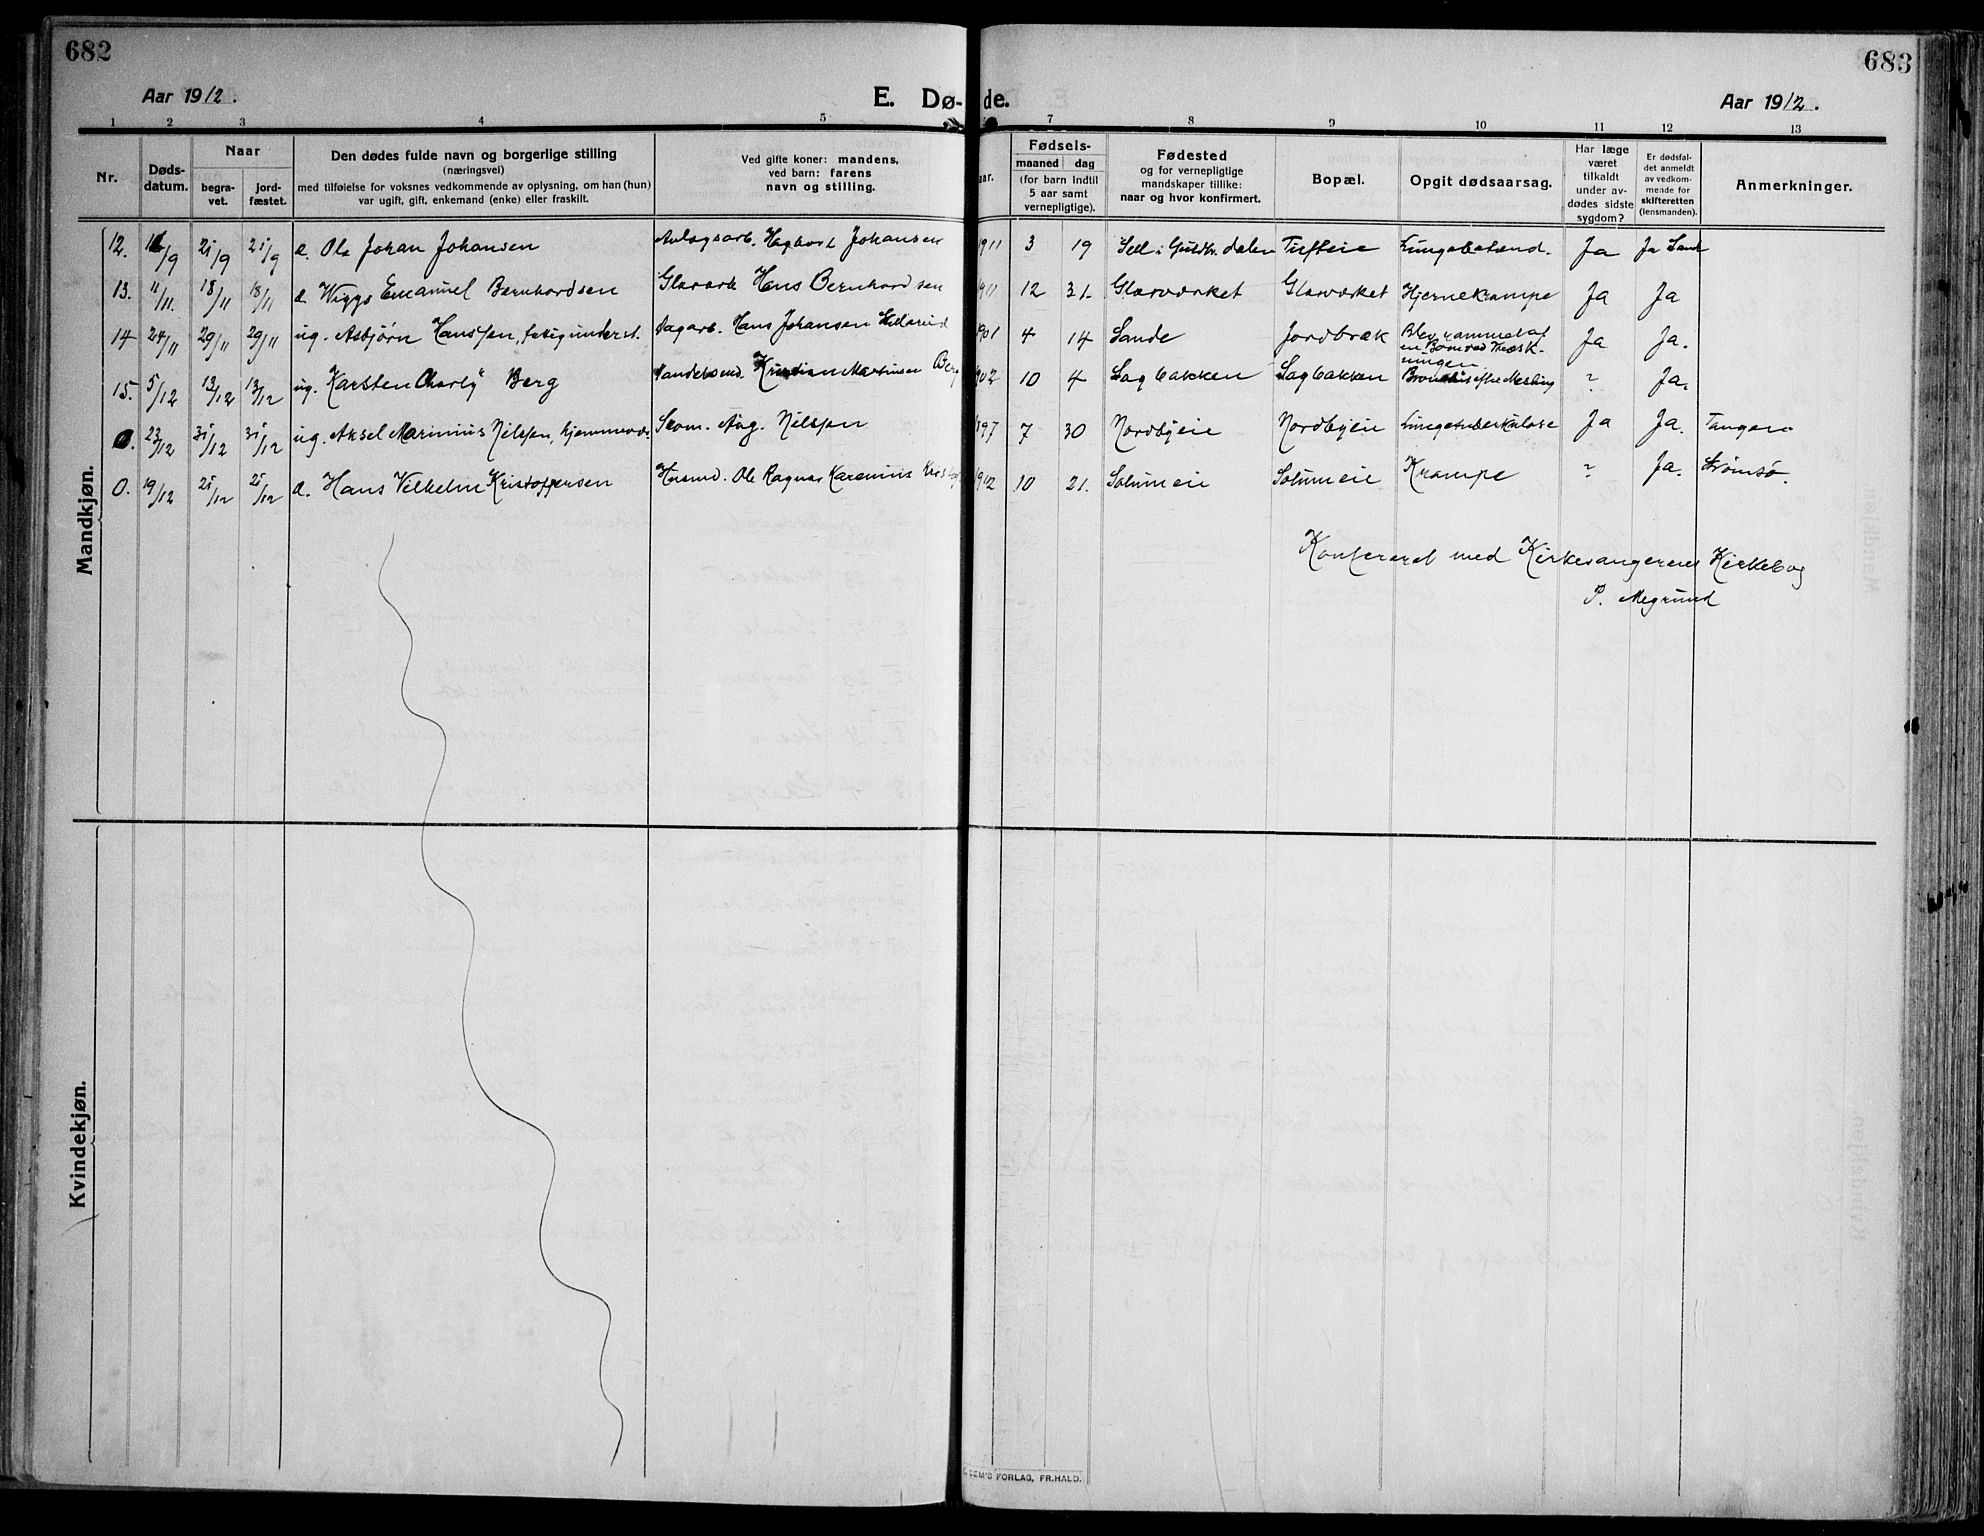 682
683
Aar 1912.
E. Dø- de.
Aar 1912.
1 2 3 4 5 7 8 9 10 11 12 13
Nr.
Døds-
datum.
Naar
begra-
vet.
jord-
fæstet.
Den dødes fulde navn og borgerlige stilling
(næringsvei)
med tilføielse for voksnes vedkommende av oplysning, om han (hun)
var ugift, gift, enkemand (enke) eller fraskilt.
Ved gifte koner: mandens,
ved barn: farens
navn og stilling.
Fødsels-
maaned dag
(for barn indtil
5 aar samt
vernepligtige).
Fødested
og for vernepligtige
mandskaper tillike:
naar og hvor konfirmert.
Bopæl.
Opgit dødsaarsag.
Har læge
været
tilkaldt
under av-
dødes sidste
sygdom?
Er dødsfal-
det anmeldt
av vedkom-
mende for
skifteretten
(lensmanden).
Anmerkninger.
Mandkjøn.
12. /9 21/9 21/9 d. Ole Johan Johansen Anlægsarb. Hagbart Johansen 1911 3 19 Sell i Guldbr. dalen Tufteie Lungebetænd. Ja Ja Sande
13. 11/11. 18/11 18/11 d. Wiggo Emanuel Bernhardsen Glasarb Hans Bernhardsen 1911 12 31. Glasværket Glasværket Hjernekrampe Ja Ja
14 24/11 29/11 29/11 ug. Asbjørn Hanssen, fattigunderst. Dagarb. Hans Johansen 1901 4 14 Sande Jordbræk Blev rammet af
en Bom ved Træsk-
ningen Ja Ja.
15. 5/12 13/12 13/12 ug. Karsten Charly Berg Handelsmd. Kristian Martinsen Berg 1902 10 4 Sagbakken Sagbakken Bronchit efter Mesling ? Ja.
0. 23/12 31/12 31/12 ug. Aksel Marinius Nilssen, hjemmevær. Skom. Aug. Nilssen 1897 7 30 Nordbyeie Nordbyeie Lungetuberkulose Ja Ja. Tangen
0. 19/12 21/12 21/12 d. Hans Vilhelm Kristoffersen Husmd. Ole Ragnar Karenius 1912 10 21. Solumeie Solumeie Krampe ? Ja. Strømsø.
Konfereret med Kirkesangerens Kirkebog
P. Megrund
Kvindekjøn.
FORLAG, FR.HALD.